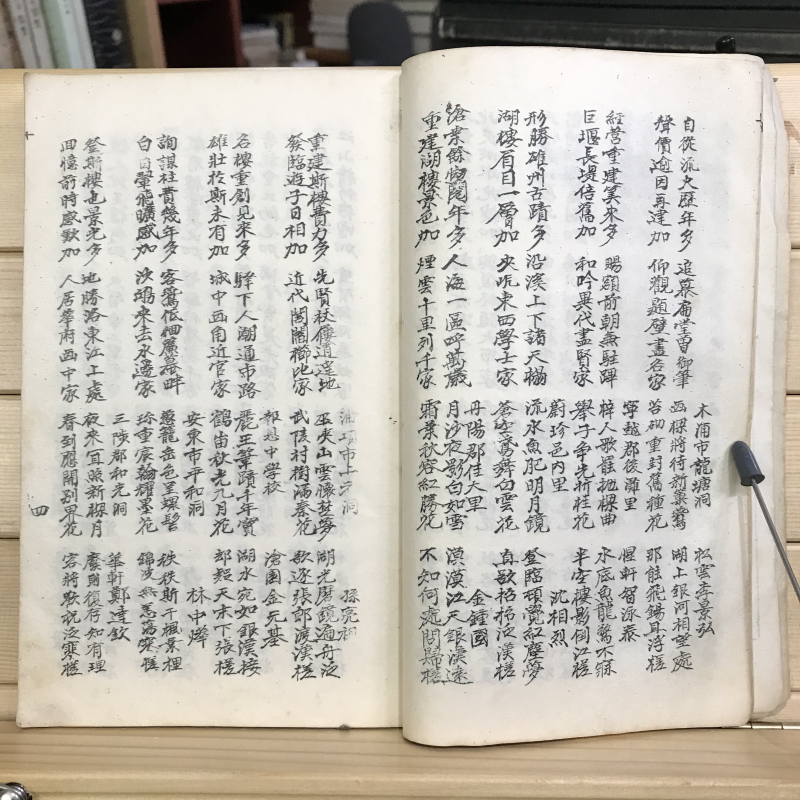 木浦市龍塘洞 松雲李景弘
自從流火歷年多 追慕扁堂曾御筆 画樑將待新巢鷰 湖上銀河相望處
聲價逾因再建加 仰觀題壁盡名家 苔砌重封舊種花 那能飛錫耳浮槎
寧越郡後灘里 惺軒智泳泰
經營重建美來多 賜額前朝無駐蹕 梓人歌罷抛樑曲 水底魚龍驚不寐
巨堰長堤倍舊加 和吟異代盡賢家 學子爭先折桂花 半空樓影倒江槎
蔚珍邑内里 沈相烈
形勝雄州古蹟多 沿溪上下諸天榻 流水魚肥明月鏡 登臨頓覺紅塵夢
湖樓有日一層加 夾岸東西學士家 蒼空鶩舞白雲花 直欲招招泛漢槎
丹陽郡佳大里 金鍾國
滄桑餘劫閱年多 人海一區呼萬歲 月沙夜影白如雪 漠漠江天銀漢遠
重建湖樓景色加 煙雲十里列千家 霜葉秋容紅勝花 不知何處問歸槎
浦項市上元洞 孫亮祖
重建斯樓費力多 先賢杖屨逍遙地 巫峽山雲懷楚夢 湖光磨鏡遍舟泛
登臨遊子日相加 近代閭閻櫛比家 武陵村樹滿春花 歌逐張郎渡漢槎
報恩中學校 滄園金元基
名樓重創見來多 驛下人湖通市路 麗王筆蹟千年寶 湖水宛如銀漢接
雄壯於斯未有加 城中西角近官家 鶴笛秋光九月花 却疑天末下張槎
安東市平和洞 林中燁
詢謀壯費幾年多 客鷰低徊簾幕畔 葱龍岳色呈螺髻 秩秩斯干楓景裡
白日翬飛曠感加 沙鷗來去水邊家 珎重宸翰耀墨花 錦波無恙蕩寒槎
三陟郡和光洞 華軒鄭建欽
登斯樓也景光多 地勝洛東江上處 夜來宜照新樑月 廢則復存知有理
回憶前時感歎加 人居華府西中家 春到應開別界花 客將歌祝泛寒槎
四